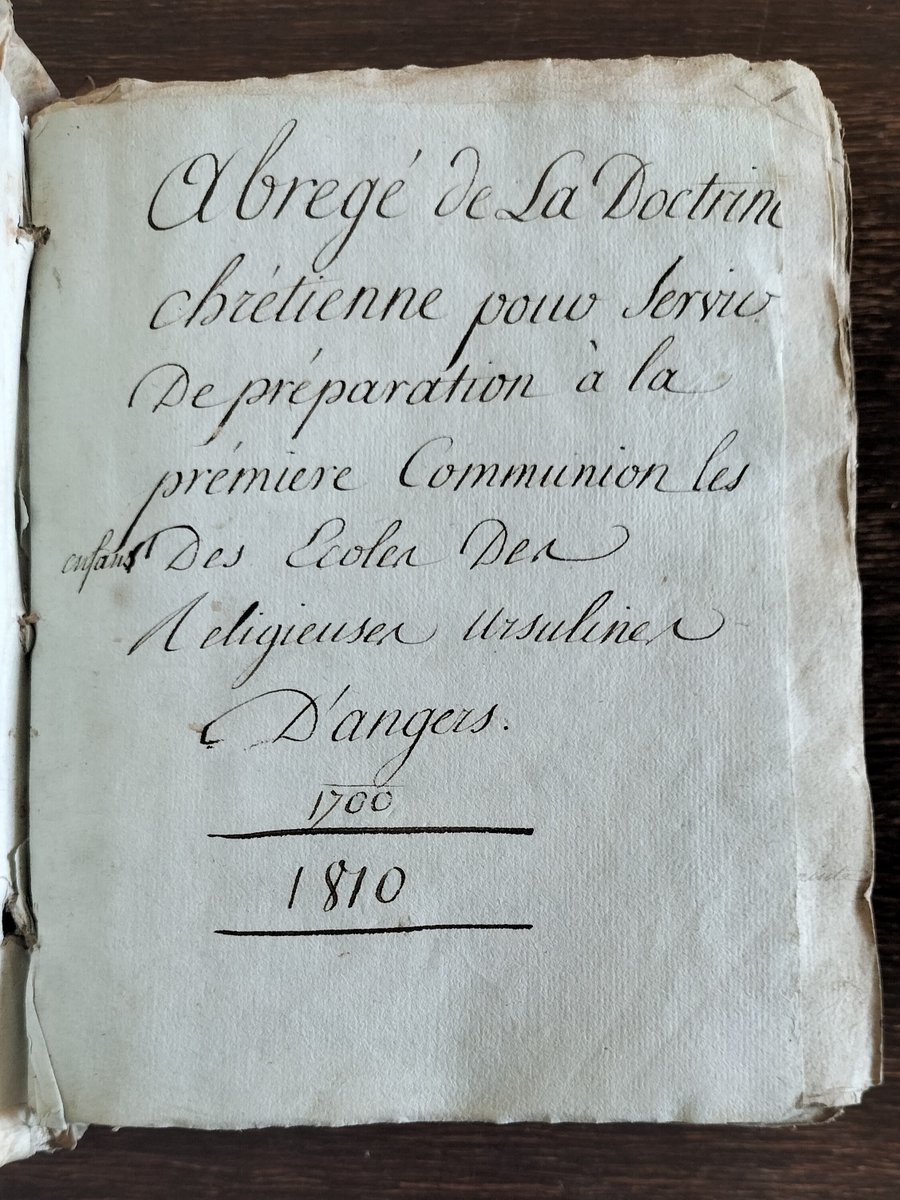 Abregé de La Doctrine
chrétienne pour Servir
De préparation à la
prémiere Communion les
enfans Des Ecoles Des
Religieuses Ursulines
D'angers.
1700
1810